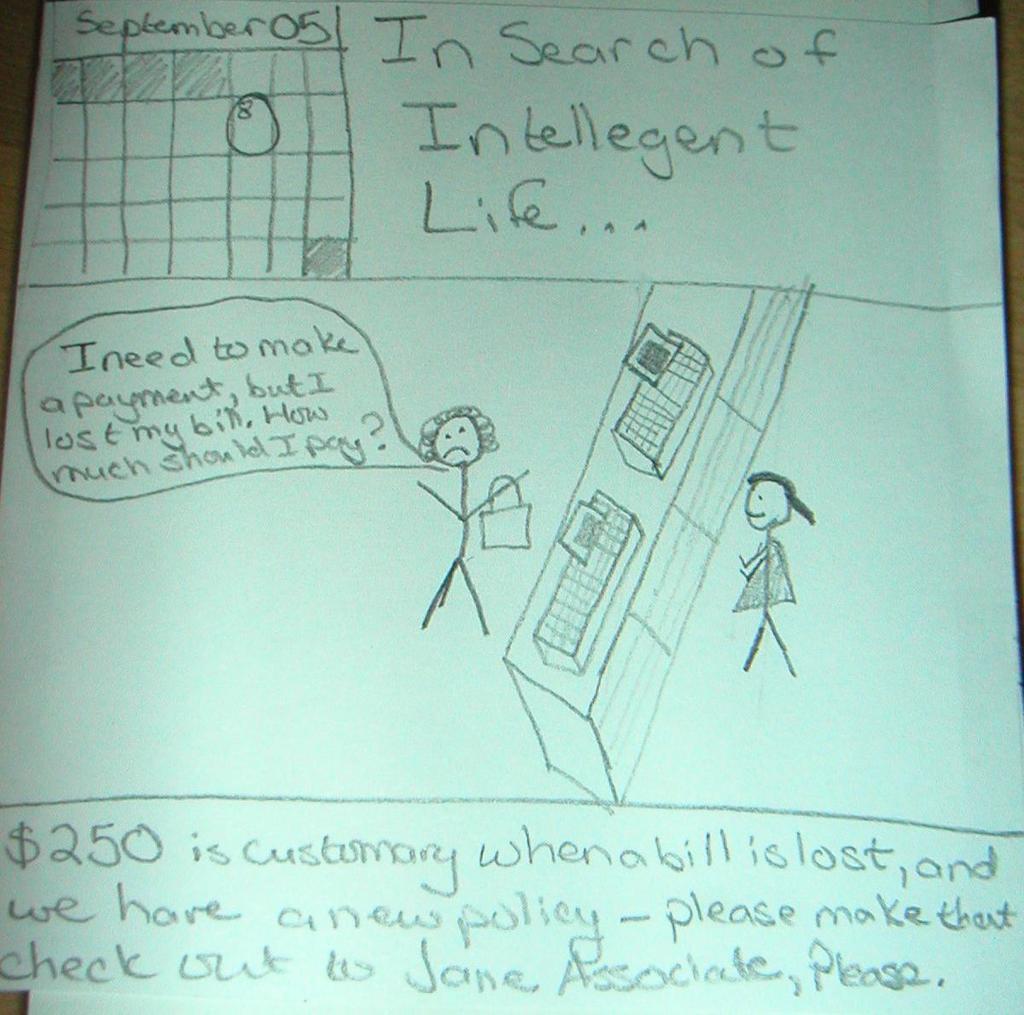 September 05
8
In Search of
Intellegent
Life...
I need to make
a payment, but I
lost my bill. How
much should I pay?
$250 is customary when a bill is lost, and
we have a new policy - please make that
check out to Jane Associate, Please.